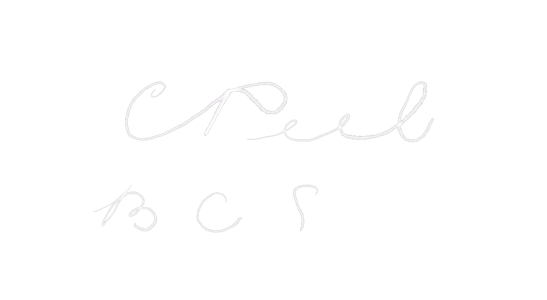 C Peel
B C S